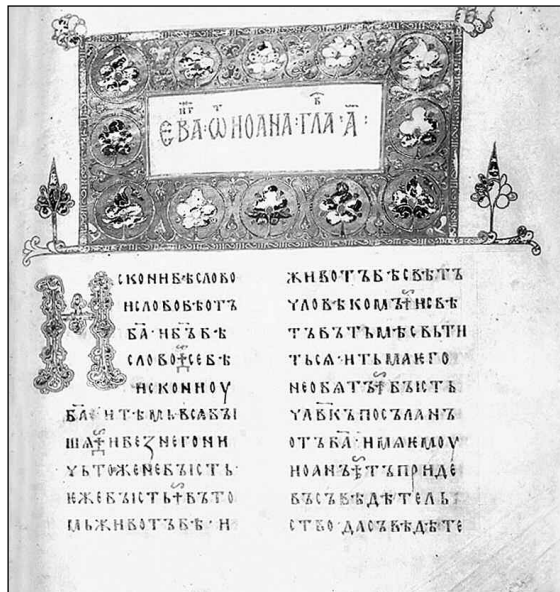 ЄВА҃ · Ѿ ИОАНА · ГЛА · А҃ :
ИСКОНИБѢСЛОВО
ИСЛОВОБѢОТЪ
БА҃·ИБЪ҃БѢ
СЛОВО✝СЕБѢ
ИСКОНИОУ
БА҃·ИТѢМЬВСѦБЫ
ШѦ✝ИБЕЗНЕГОНИ
ЧЬТОЖЕНЕБЫСТЬ·
ѤЖЕБЫСТЬ✝ВЪТО
МЬЖИВОТЪБѢ·И
ЖИВОТЪБѢСВѢТЪ
ЧЛОВѢКОМЪ✝ИСВѢ
ТЪВЪТЬМѢСВЬТИ
ТЬСѦ·ИТЬМАѤГО
НЕОБѦТЪ✝БЫСТЬ
ЧЛ҃ВКЪПОСЪЛАНЪ
ОТЪБА҃·ИМѦѤМОУ
ИОАНЪ✝ТЪПРИДЕ
ВЪСЪВѢДѢТЕЛЬ
СТВО·ДАСЪВѢДѢТЕ